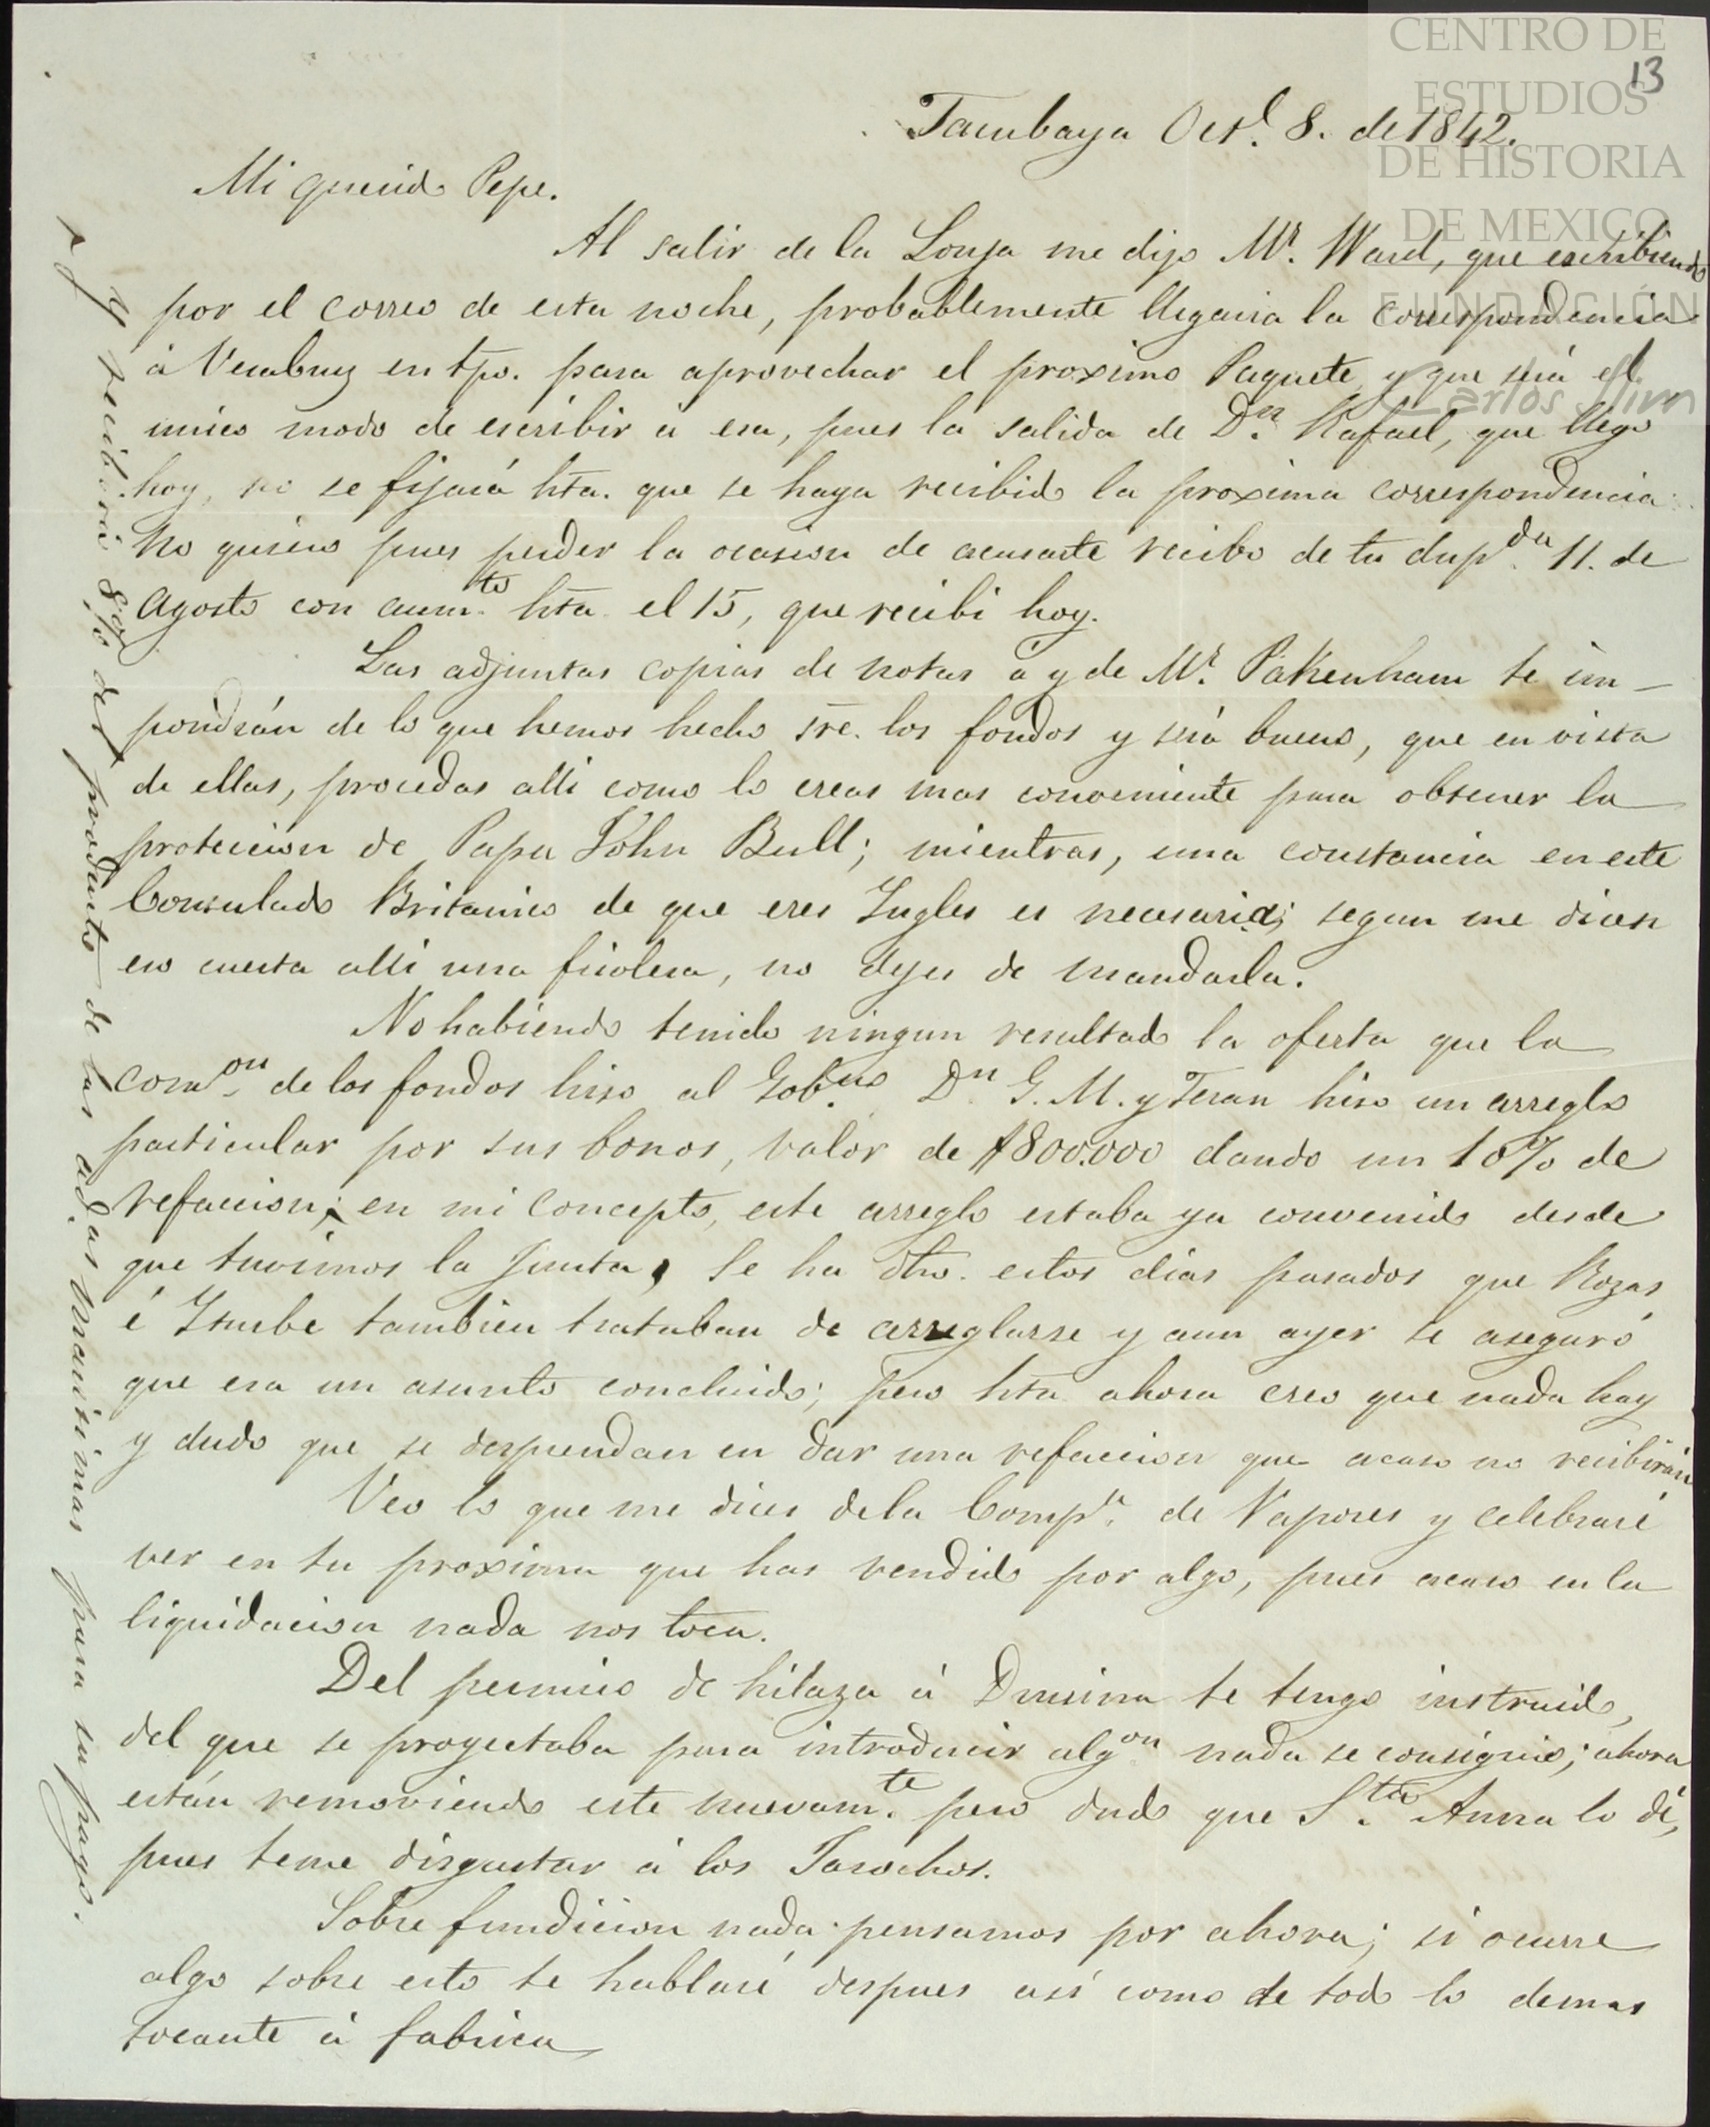 CENTRO DE
ESTUDIOS
DE HISTORIA
DE MEXICO
FUNDACIÓN
Carlos Slim
13
Tacubaya Oct.^e 8. de 1842.
Mi querido Pepe.
Al salir de la Lonja me dijo M^r. Ward, que escribiendo
por el correo de esta noche, probablemente llegaria la correspondencia
á Veracruz en tpo. para aprovechar el proximo Paquete, y que será el
unico modo de escribir á esa, pues la salida de D^n. Rafael, que llegó
hoy, no se fijará hta. que se haya recibido la proxima correspondencia.
No quiero pues perder la ocasion de acusarte recibo de tu dup^da. 11. de
Agosto con aum^to. hta el 15, que recibi hoy.
Las adjuntas copias de notas á y de M^r. Pakenham te im-
pondrán de lo que hemos hecho sre. los fondos y será bueno, que en vista
de ellas, procedas alli como lo creas mas conveniente para obtener la
proteccion de Papa John Bull; mientras, una constancia en este
Consulado Britanico de que eres Ingles es necesaria; segun me dicen
eso cuesta alli una friolera, no dejes de mandarla.
No habiendo tenido ningun resultado la oferta que la
com^on. de los fondos hiso al Gob^no. D^n G. M. y Teran hiso un arreglo
particular por sus bonos, valor de $800.000 dando un 10% de
refaccion; en mi concepto, este arreglo estaba ya convenido desde
que tuvimos la Junta, Se ha dho. estos dias pasados que Rozas
é Iturbe tambien trataban de arreglarse y aun ayer se aseguró
que era un asunto concluido; pero hta ahora creo que nada hay
y dudo que se desprendan en dar una refaccion que acaso no recibirán
Veo lo que me dices de la Comp^a. de Vapores y celebraré
ver en tu proxima que has vendido por algo, pues acaso en la
liquidacion nada nos toca.
Del permiso de hilaza á Drusina te tengo instruido,
del que se proyectaba para introducir alg^on nada se consiguio; ahora
están removiendo este nuevam^te. pero dudo que S^ta. Anna lo dé,
pues teme disgustar á los Jarochos.
Sobre fundicion nada pensamos por ahora; si ocurre
algo sobre esto te hablaré despues asi como de todo lo demas
tocante á fabrica
y recibirá 8% del producto de las ad.^as maritimas para su pago.